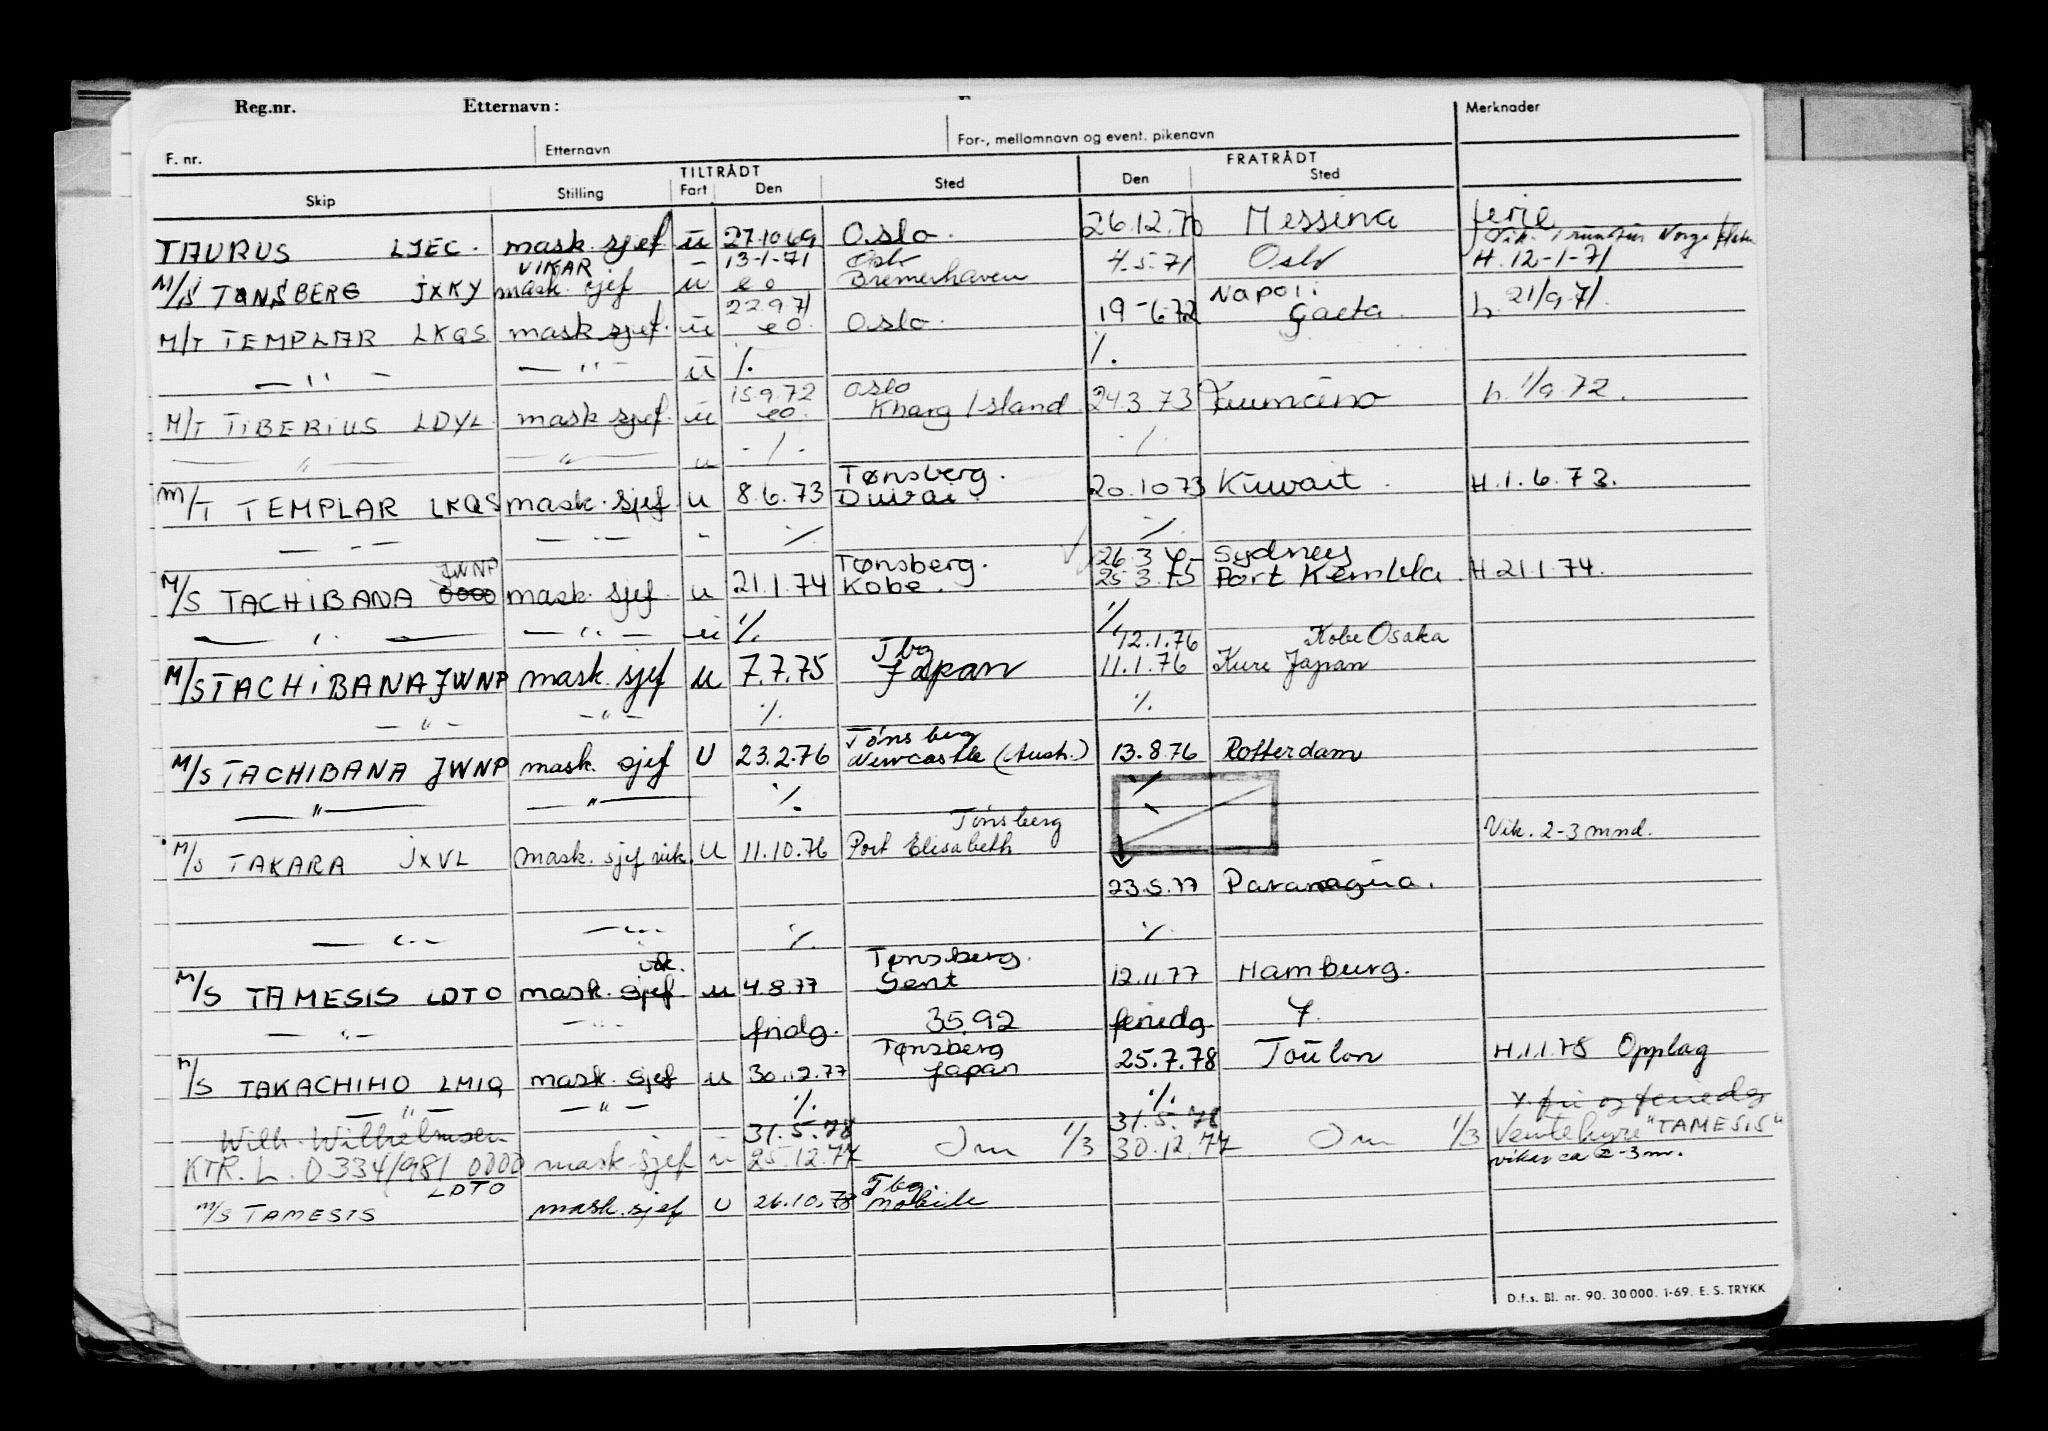 Reg.nr. Etternavn:
F. nr. Etternavn For-, mellomnavn og event. pikenavn Merknader
TILTRÅDT FRATRÅDT
Skip Stilling Fart Den Sted Den Sted
TAURUS LJEC. mask. sjef u 27.10.69 Oslo. 26.12.70 Messina ferie
VIKAR - 13-1-71 Oslo Vik. 1 rundtur Norge
M/S TØNSBERG JXKY mask. sjef u eo Bremerhaven 4.5.71 Oslo H. 12-1-71
22.9.71 Napoli
M/T TEMPLAR LKQS mask sjef. u eo. Oslo. 19-6.72 Gaeta. h. 21/9.71.
— " — — " — u %. %.
15.9.72 Oslo
M/T TIBERIUS LDYL mask sjef. u eo. Kharg Island 24.3.73 Fiumicino h. 1/9.72.
— " — — " — u -/- -/-
Tønsberg.
M/T TEMPLAR LKQS mask. sjef u 8.6.73 20.10.73 Kuwait. H.1.6.73.
— - — — - — - % %
JWNP Tønsberg. 26.3.75 Sydney
M/S TACHIBANA 0000 mask. sjef u 21.1.74 Kobe. 25.3.75 Port Kembla. H.21.1.74.
— " — — " — u %. %
Tbg 12.1.76 Kobe Osaka
M/S TACHIBANA JWNP mask. sjef u 7.7.75 Japan 11.1.76 Kure Japan
— " — — " — %. %.
Tønsberg
M/S TACHIBANA JWNP mask. sjef U 23.2.76 Newcastle (Aust.) 13.8.76 Rotterdam
— " — — " — %. %
Tønsberg
M/S TAKARA JXVL mask. sjef vik. U 11.10.76 Port Elisabeth Vik. 2-3 mnd.
23.5.77 Paranagua.
— " — — " — %. %.
vik. Tønsberg.
M/S TAMESIS LDTO mask. sjef u 4.8.77 Gent 12.11.77 Hamburg.
— " — — " — fridg. 3592 feriedg. 7.
Tønsberg
M/S TAKACHIHO LMIQ mask. sjef u 30.12.77 Japan 25.7.78 Toulon H.1.1.78 Opplag
— " — — " — %. %. x. fri og feriedg
Wilh. Wilhelmsen 31.5.78 31.5.78
KTR.L. D334/981 0000 mask sjef u 25.12.77 1/3 30.12.77 1/3 Ventehyre "TAMESIS"
LDTO Tbg vikar ca 2-3 m.
M/S TAMESIS mask. sjef U 26.10.78 Mobile
D.f.s. Bl. nr. 90. 30 000. 1-69. E. S. TRYKK